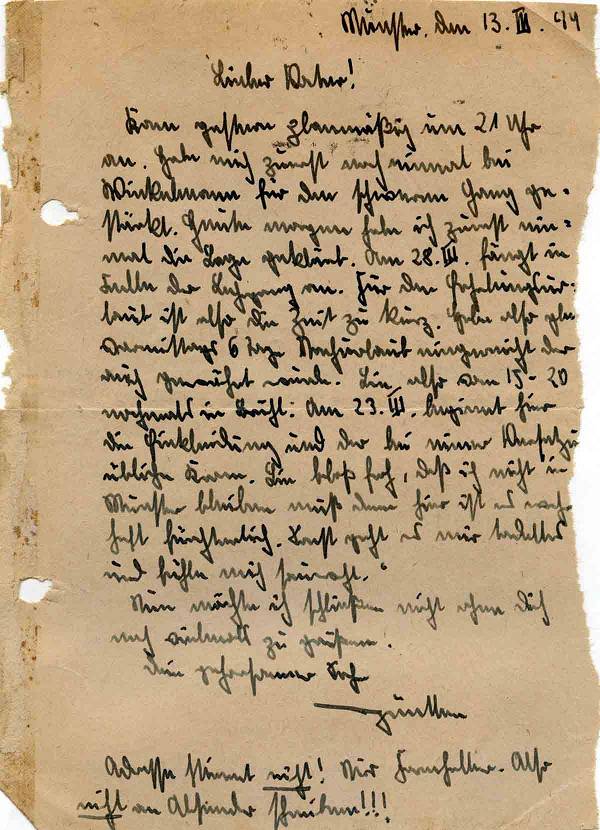 Münster, den 13. III. 44
Lieber Vater!
Kam gestern planmäßig um 21 Uhr
an. Habe mich zuerst noch einmal bei
Winkelmann für den schweren Gang ge-
stärkt. Heute morgen habe ich zuerst ein-
mal die Lage geklärt. Am 28. III. fängt in
der Lehrgang an. Für den Erholungsur-
laub ist also die Zeit zu kurz. Habe also
vormittags 6 Tage Nachurlaub eingereicht der
auch gewährt wurde. Bin also vom 15-20
nochmals in Brühl. Am 23. III. beginnt hier
die Einkleidung und der bei einer Versetzu
übliche Kram. Bin bloß froh, daß ich nicht in
Münster bleiben muß denn hier ist es wahr-
haft fürchterlich. Sonst geht es mir tadellos
und fühle mich sauwohl.
Nun möchte ich schließen nicht ohne Dich
noch vielmals zu grüßen.
Dein gehorsamer Sohn
Günther
Adresse stimmt nicht! Nur Also
nicht an Absender schreiben!!!